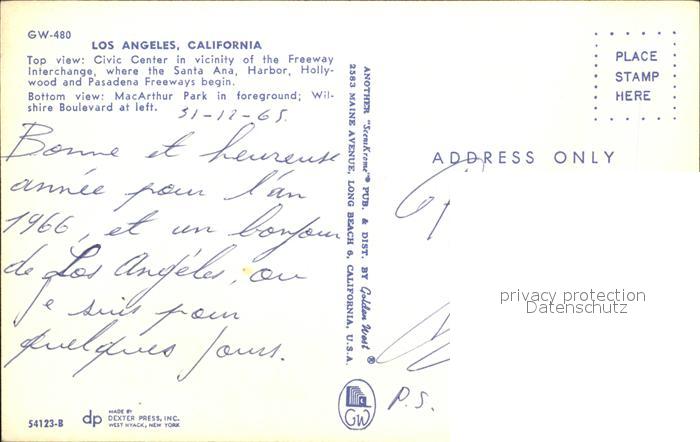 GW-480
LOS ANGELES, CALIFORNIA
Top view: Civic Center in vicinity of the Freeway
Interchange, where the Santa Ana, Harbor, Holly-
wood and Pasadena Freeways begin.
Bottom view: MacArthur Park in foreground; Wil-
shire Boulevard at left.
31-12-65.
Bonne et heureuse
année pour l'an
1966, et un bonjour
de Los Angélès, ou
je suis pour
quelques jours.
54123-B
dp
MADE BY
DEXTER PRESS, INC.
WEST NYACK, NEW YORK
ANOTHER "ScenKrome"® PUB. & DIST. BY Golden West ®
2583 MAINE AVENUE, LONG BEACH 6, CALIFORNIA, U.S.A.
GW
PLACE
STAMP
HERE
ADDRESS ONLY
privacy protection
Datenschutz
P.S.